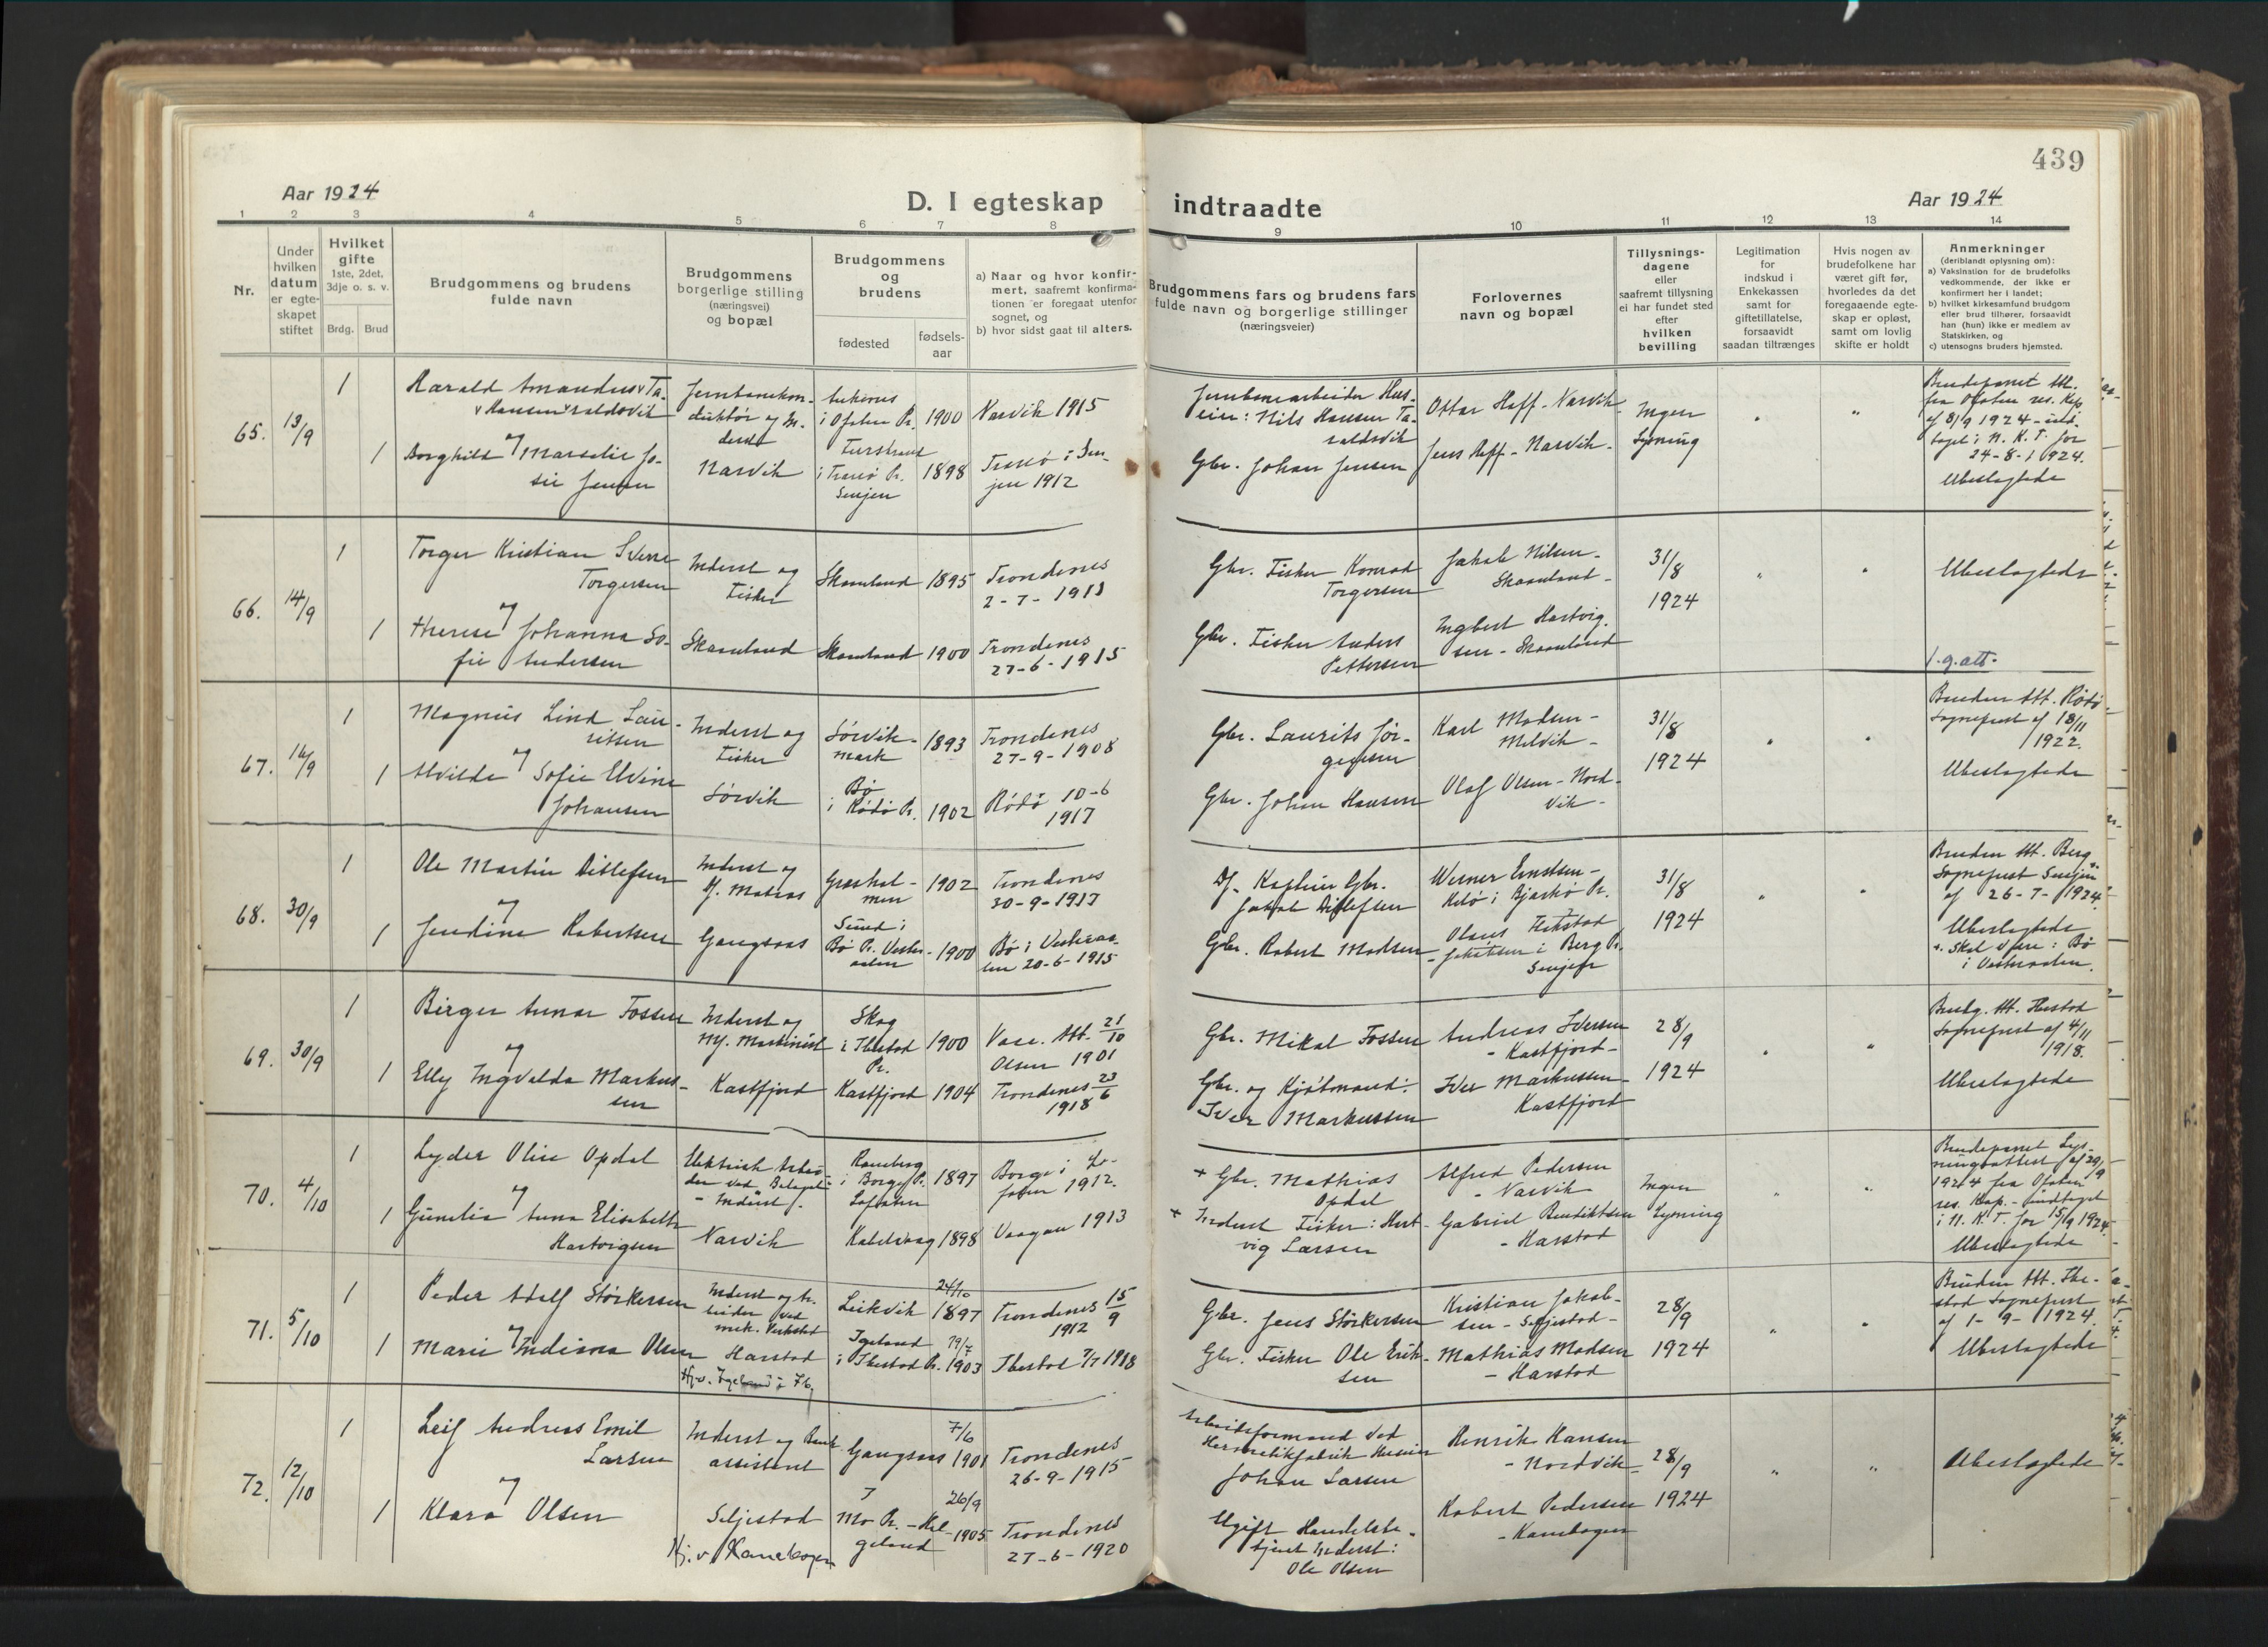 439
Aar 1924
D. I egteskap
indtraadte
Aar 1924
1 2 3 4 5 6 7 8 9 10 11 12 13 14
Nr.
Under
hvilken
datum
er egte-
skapet
stiftet
Hvilket
gifte
1ste, 2det,
3dje o. s. v.
Brdg. Brud
Brudgommens og brudens
fulde navn
Brudgommens
borgerlige stilling
(næringsvei)
og bopæl
Brudgommens
og
brudens
fødested
fødsels-
aar
a) Naar og hvor konfir-
mert, saafremt konfirma-
tionen er foregaat utenfor
sognet, og
b) hvor sidst gaat til alters.
Brudgommens fars og brudens fars
fulde navn og borgerlige stillinger
(næringsveier)
Forlovernes
navn og bopæl
Tillysnings-
dagene
eller
saafremt tillysning
ei har fundet sted
efter
hvilken
bevilling
Legitimation
for
indskud i
Enkekassen
samt for
giftetillatelse,
forsaavidt
saadan tiltrænges
Hvis nogen av
brudefolkene har
været gift før,
hvorledes da det
foregaaende egte-
skap er opløst,
samt om lovlig
skifte er holdt
Anmerkninger
(deriblandt oplysning om):
a) Vaksination for de brudefolks
vedkommende, der ikke er
konfirmert her i landet;
b) hvilket kirkesamfund brudgom
eller brud tilhører, forsaavidt
han (hun) ikke er medlem av
Statskirken, og
c) utensogns bruders hjemsted.
65. 13/9
1
Harald Amandus Ta-
Hansen raldsvik
og
1
Borghild Marselie Jo-
sie Jensen
Jernbanekon-
duktør og In-
derst
Narvik
Ankenes
i Ofoten Pr. 1900
i Tranø Pr. 1898
Senjen
Narvik 1915
Tranø i Sen-
jen 1912
Jernbanearbeider Hus-
eier: Nils Hansen Ta-
raldsvik
Gbr. Johan Jensen
Ottar Hoff - Narvik
Jens Hoff - Narvik -
Ingen
Lysning
Brudeparret Att.
fra Ofoten res. Kap
af 8/9 1924 - ind-
taget i N. K. T. for
24-8-1924.
Ubeslegtede
66. 14/9
1
Torger Kristian Sverre
Torgersen
og
1
Therese Johanna So-
fie Andersen
Inderst og
Fisker
Skaanland
Skaanland 1895
Skaanland 1900
Trondenes
2-7-1911
Trondenes
27-6-1915
Gbr. Fisker Konrad
Torgersen
Gbr. Fisker Anders
Pettersen
Jakob Nilsen -
Skaanland -
Ingbert Hartvig-
sen - Skaanland
31/8
1924
Ubeslegtede
67. 14/9
1
Magnus Lind Lau-
ritsen
og
1
Alvilde Sofie Elvine
Johansen
Inderst og
Fisker
Sørvik
Sørvik-
mark 1893
Bø
i Rødø Pr. 1902
Trondenes
27-9-1908
Rødø 10-6
1917
Gbr. Laurits Jør-
gensen
Gbr. Johan Hansen
Karl Madsen -
Melvik -
Olaf Olsen - Nord-
vik -
31/8
1924
Bruden Att. Rødø
Sogneprest af 18/11
1922.
Ubeslegtede
68. 30/9
1
Ole Martin Ditlefsen
og
1
Jendine Robertsen
Inderst og
Matros
Gangsaas
Grasholmen 1902
Sund i
Bø Pr. Vester-
aalen 1900
Trondenes
30-9-1917
Bø i Vesteraa-
len 20-6-1915
Df. Kaptein Gbr.
Jakob Ditlefsen
Gbr. Robert Madsen
Werner Ernstsen -
Kelø i Bjarkø Pr.
i Berg Pr.
Senjen
31/8
1924
Bruden Att. Berg
Sogneprest Senjen
af 26-7-1924.
Ubeslegtede
+. Skal være: Bø
i Vesteraalen.
69. 30/9
1
Birger Annar Fossen
og
1
Elly Ingvalda Markus-
sen
Inderst og
Maskinist
Kastfjord
Skog
i Ibestad
Pr. 1900
Kastfjord 1904
Vacc. Att. 21/10
Olsen 1901
Trondenes 23/6
1918
Gbr. Mikal Fossen
Gbr. og Kjøbmand:
Iver Markussen
Andreas Iversen
- Kastfjord -
Iver Markussen -
Kastfjord
28/9
1924
Brudg. Att. Ibestad
Sogneprest af 4/11
1918.
Ubeslegtede
70. 4/10
1
Lyder Olise Opdal
og
1
Gunelie Anna Elisabeth
Hartvigsen
Elektrisk Arbei-
der ved Belaget
- Inderst -
Narvik
i Borge Pr. 1897
Lofoten
Kabelvaag 1898
Borge i Lo-
foten 1912.
Vaagan 1913
+ Gbr. Mathias
Opdal
+ Inderst Fisker: Hart-
vig Larsen
Alfred Pedersen
- Narvik
Gabriel Bendiktsen
- Harstad
Ingen
Lysning
Brudeparret Lys-
ningsattest af 29/9
1924 fra Ofoten
res. Kap. - indtaget
i N. K. T. for 15/9 1924.
Ubeslegtede
71. 5/10
1
Peder Adolf Störkersen
og
1
Marie Indiana Olsen
Inderst og Ar-
beider ved
mek. Verksted
Harstad
Leikvik 24/10 1897
Igeland 19/7
i Ibestad Pr. 1903
Trondenes 15/9
1912
Ibestad 7/7 1918
Gbr. Jens Störkersen
Gbr. Fisker Ole Erik-
sen
Kristian Jakob-
sen - Seljestad -
Mathias Madsen
- Harstad
28/9
1924
Bruden Att. Ibe-
stad Sogneprest
af 1-9-1924.
Ubeslegtede
72. 12/10
1
Leif Andreas Emil
Larsen
og
1
Klara Olsen
Inderst og Bank-
assistent
Seljestad
Hj. v. Kanebogen
Gangsaas 7/6 1901
Mo Pr. - Hel-
geland 26/9 1905
Trondenes
26-9-1915
Trondenes
27-6-1920
Arbeidsformand ved
Hermetikfabrik Huseier
Johan Larsen
Ugift Handelsbe-
tjent Inderst:
Ole Olsen
Henrik Hansen
- Nordvik -
Robert Pedersen
- Kanebogen
28/9
1924
Ubeslegtede